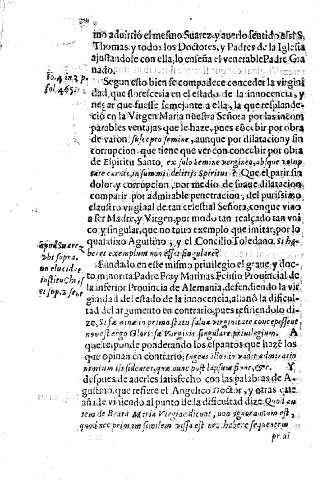 mo advirtiò el mesmo Suarez, y auerlo sentido assi S.
Thomas, y todos los Doctores, y Padres de la Iglesia
ajustandose con ella, lo enseña el venerable Padre Gra
nado.
Segun esto bien se compadece conceder la virgini
dad, que florescia en el estado de la innocencia, y
negar que fuesse semejante a ella, la que resplande-
ciò en la Virgen Maria nuestra Señora por las incom
parables ventajas que le haze, pues cōcebir por obra
de varon, aunque por dilatacion y sin
corrupcion, que tiene que ver con concebir por obra
de Espiritu Santo, ex solo semine virgineo, absque volup
tate carnis, in summis delitijs Spiritus? Que el parir sin
dolor, y corrupcion, por medio de suaue dilatacion
comparir por admirable penetracion, del purissimo
claustro virginal de tan celestial Señora, conque vino
a ser Madre, y Virgen, por modo tan realçado tan vni
co y singular, que no tauo exemplo que imitar, por lo
qual dixo Agustino, y el Concilio Toledano. Si ha-
beret exemplum non esset singulare?
Fundado en este mismo priuilegio el graue, y doc-
to, minorita Padre Fray Mathias Felisio Prouincial de
la inferior Prouincia de Alemania, defendiendo la vir
ginidad del estado de la innocencia, allanò la dificul-
tad del argumento en contrario, pues refiriendolo di-
ze,
nouest ergo Gloriosæ Virginis singulare priuilegium. A
que responde ponderando los espantos que hazē los
que opinan en contrario,
nimium illis ridentes, quæ nunc post lapsum sunt, &c. Y
despues de auerles satisfecho con las palabras de A-
gustino, que refiere el Angelico Doctor, y otras que
añade viniendo al punto de la dificultad dize. Quod au
tem de Beata Maria Virgine dicunt, non ignoramus est,
quod nec primum similem visa est nec habere sequentem
pr. ai
to. 4 in 3. p.
fol. 465.
Apud Suarez
vbi supra.